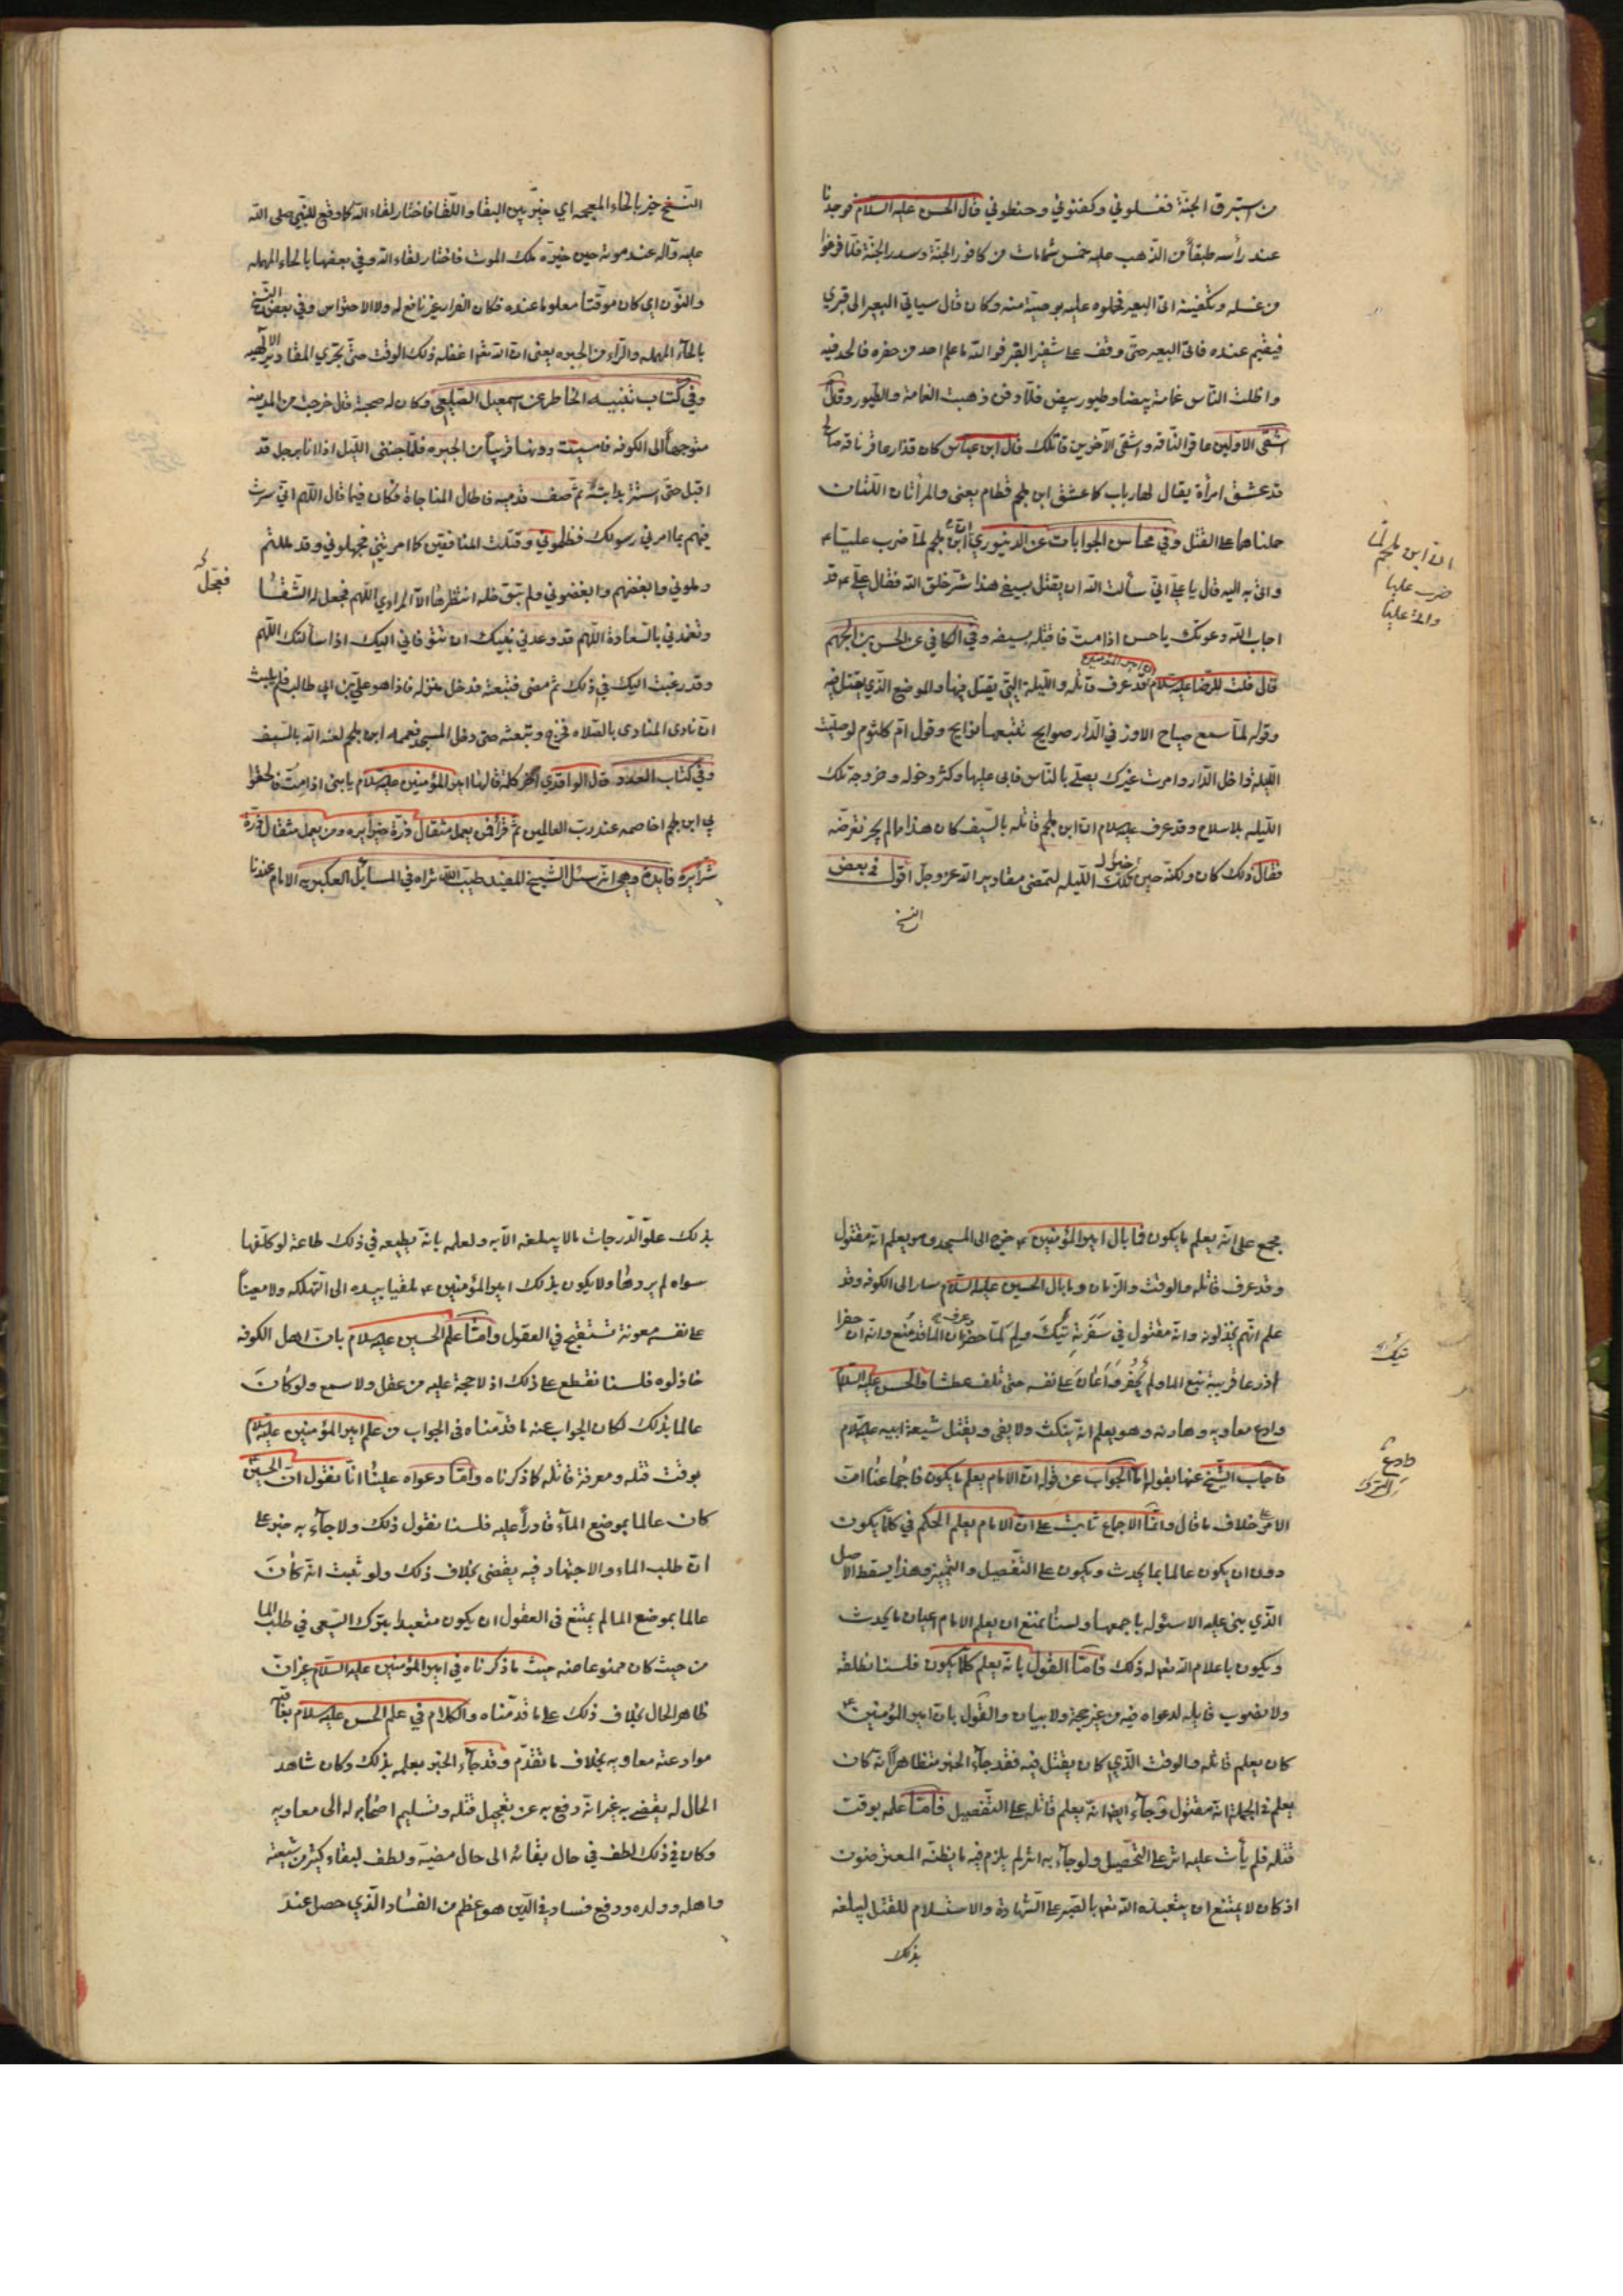 من استبرق الجنّة فغسلوني وكفنوني وحنطوني قال الحسن عليه السلام فوجدنا
عند رأسه طبقاً من الذهب عليه خمس شمامات من كافور الجنّة وسدر الجنّة فلمّا فرغوا
من غسله وتكفينه اتى البعير فحملوه عليه بوصيّة منه وكان قال سياتي البعير الى قبري
فيقيم عنده فاتى البعير حتى وقف على شفير القبر فوالله ما علم احد من حفره فالحد فيه
واظلت الناس غمامة بيضا وطيور بيض فلمّا دفن ذهبت الغمامة والطيور وقال
اشقى الاوّلين عاقر الناقه واشقى الآخرين قاتلك قال ابن عباس كان قذار عاقر ناقه صالح
قد عشق امرأة يقال لها رباب كما عشق ابن ملجم قطام يعنى والمرأتان اللتان
حملتاهما على القتل وفي محاسن الجوابات عن الدينوري ان ابن ملجم لمّا ضرب عليّا ع
واتى به اليه قال يا علي اني سألت الله ان يقتل بسيفي هذا شرّ خلق الله فقال علي ع قد
اجاب الله دعوتك يا حسن اذا متّ فاقتله بسيفه وفي الكافي عن الحسن بن الجهم
قال قلت للرضا عليه السلام ان امير المؤمنين قد عرف قاتله والليلة التي يقتل فيها والموضع الذي يقتل فيه
وقوله لمّا سمع صياح الاوز في الدار صوايح تتبعها نوايح وقول ام كلثوم لو صليت
الليلة داخل الدار وامرت غيرك يصلي بالناس فابى عليها وكثر دخوله وخروجه تلك
الليله بلا سلاح وقد عرف عليه السلام ان ابن ملجم قاتله بالسيف كان هذا ما لم يجز تعرضه
فقال ذلك كان ولكنه خيّر في تلك الليله لتمضى مقادير الله عز وجل اقول في بعض
النسخ
ان ابن ملجم لمّا
ضرب عليا
النسخ خيّر بالخاء المعجمه اي خيّر بين البقا واللقا فاختار لقاء الله كما وقع للنبي صلى الله
عليه وآله عند موته حين خيّره ملك الموت فاختار لقاء الله وفي بعضها بالحاء المهمله
والنون اي كان موقتا معلوما عنده فكان الفرار غير نافع له ولا الاحتراس وفي بعض النسخ
بالحآء المهمله والرآء من الحيره يعنى ان الله تعالى اغفله ذلك الوقت حتى تجري المقادير الالهيه
وفي كتاب تنبيه الخاطر عن اسمعيل الصليعي وكان له صحبة قال خرجت من المدينه
متوجهاً الى الكوفه فامسيت دونها قريباً من الحيره فلمّا جنني الليل اذا انا برجل قد
اقبل حتى استتر برابيه ثم صف قدميه فاطال المناجاة فكان فيما قال اللهم اني سرت
فيهم بما امرني رسولك فظلموني وقتلت المنافقين كما امرتني فجهلوني وقد مللتهم
وملوني وابغضتهم وابغضوني ولم تبق خله انتظرها الا المرادي اللهم فعجل له الشقا
وتغمدني بالسعادة اللهم قد وعدني نبيك ان تتوفاني اليك اذا سألتك اللهم
وقد رغبت اليك في ذلك ثم مضى فتبعته فدخل منزله فاذا هو علي بن ابي طالب فلم يلبث
ان نادى المنادى بالصلاه فخرج وتبعته حتى دخل المسجد فعممه ابن ملجم لعنه الله بالسيف
وفي كتاب العدد قال الواقدي آخر كلمة قالها امير المؤمنين عليه السلام يا بنى اذا متّ فالحقوا
بي ابن ملجم اخاصمه عند رب العالمين ثم قرأ فمن يعمل مثقال ذرّة خيراً يره ومن يعمل مثقال ذرّة
شرّاً يره فايدة وهي انه سئل الشيخ المفيد طيب الله ثراه في المسائل العكبريه الامام عندنا
فعجّل له
مجمع على انه يعلم ما يكون فما بال امير المؤمنين ع خرج الى المسجد وهو يعلم انه مقتول
وقد عرف قاتله والوقت والزمان وما بال الحسين عليه السلام سار الى الكوفه وقد
علم انهم يخذلونه وانه مقتول في سفرته تيك ولم لمّا حضر وعرف ان الما قد منع وانه ان حفر
اذرعا قريبة نبع الما ولم يحفر واعان على نفسه حتى تلف عطشا والحسن عليه السلام
وادع معاويه وهادنه وهو يعلم انه ينكث ولا يفى ويقتل شيعة ابيه عليه السلام
فاجاب الشيخ عنها بقوله اما الجواب عن قوله ان الامام يعلم ما يكون فاجماعنا ان
الامر على خلاف ما قال وانما الاجماع ثابت على ان الامام يعلم الحكم في كلما يكون
دون ان يكون عالما بما يحدث ويكون على التفصيل والتمييز وهذا يسقط الاصل
الذي بنى عليه الاسئوله باجمعها ولسنا نمنع ان يعلم الامام اعيان ما يحدث
ويكون باعلام الله تعالى له ذلك فامّا القول بانه يعلم كلما يكون فلسنا نطلقه
ولا نصوب قايله لدعواه فيه من غير حجة ولا بيان والقول بان امير المؤمنين ع
كان يعلم قاتله والوقت الذي كان يقتل فيه فقد جآء الخبر متظاهراً انه كان
يعلم في الجملة انه مقتول وجآء ايضا انه يعلم قاتله على التفصيل فامّا علمه بوقت
قتله فلم يأت عليه اثر على التحصيل ولو جآء به اثر لم يلزم فيه ما يظنه المعترضون
اذ كان لا يمتنع ان يتعبده الله تعالى بالصبر على الشهادة والاستسلام للقتل ليبلغه
بذلك
تيك
وادع
بذلك علوّ الدرجات ما لا يبلغه الا به ولعلمه بانه يطيعه في ذلك طاعة لو كلفها
سواه لم يردها ولا يكون بذلك امير المؤمنين ع ملقيا بيده الى التهلكه ولا معيناً
على نفسه معونة تستقبح في العقول وامّا علم الحسين عليه السلام بان اهل الكوفه
خاذلوه فلسنا نقطع على ذلك اذ لا حجة عليه من عقل ولا سمع ولو كان
عالما بذلك لكان الجواب عنه ما قدمناه في الجواب عن علم امير المؤمنين عليه السلام
بوقت قتله ومعرفة قاتله كما ذكرناه وامّا دعواه علينا انّا نقول ان الحسين ع
كان عالما بموضع المآء قادراً عليه فلسنا نقول ذلك ولا جآء به خبر على
ان طلب الماء والاجتهاد فيه يقضى بخلاف ذلك ولو ثبت انه كان
عالما بموضع الما لم يمتنع فى العقول ان يكون متعبدا بترك السعى في طلب الما
من حيث كان ممنوعا منه حيث ما ذكرناه في امير المؤمنين عليه السلام غير ان
ظاهر الحال بخلاف ذلك على ما قدمناه والكلام في علم الحسن عليه السلام بعاقبة
موادعته معاويه بخلاف ما تقدم وقد جآء الخبر بعلمه بذلك وكان شاهد
الحال له يقضي به غير انه دفع به عن تعجيل قتله وتسليم اصحابه له الى معاويه
وكان في ذلك لطف في حال بقائه الى حال مضيه ولطف لبقاء كثير من شيعته
واهله وولده ودفع فساد في الدين هو اعظم من الفساد الذي حصل عند